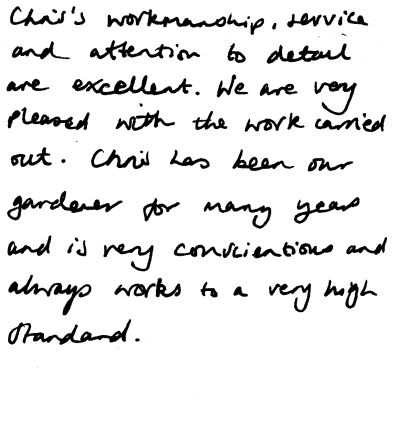 Chris's workmanship, service
and attention to detail
are excellent. We are very
pleased with the work carried
out. Chris has been our
gardener for many years
and is very conscientious and
always works to a very high
standard.